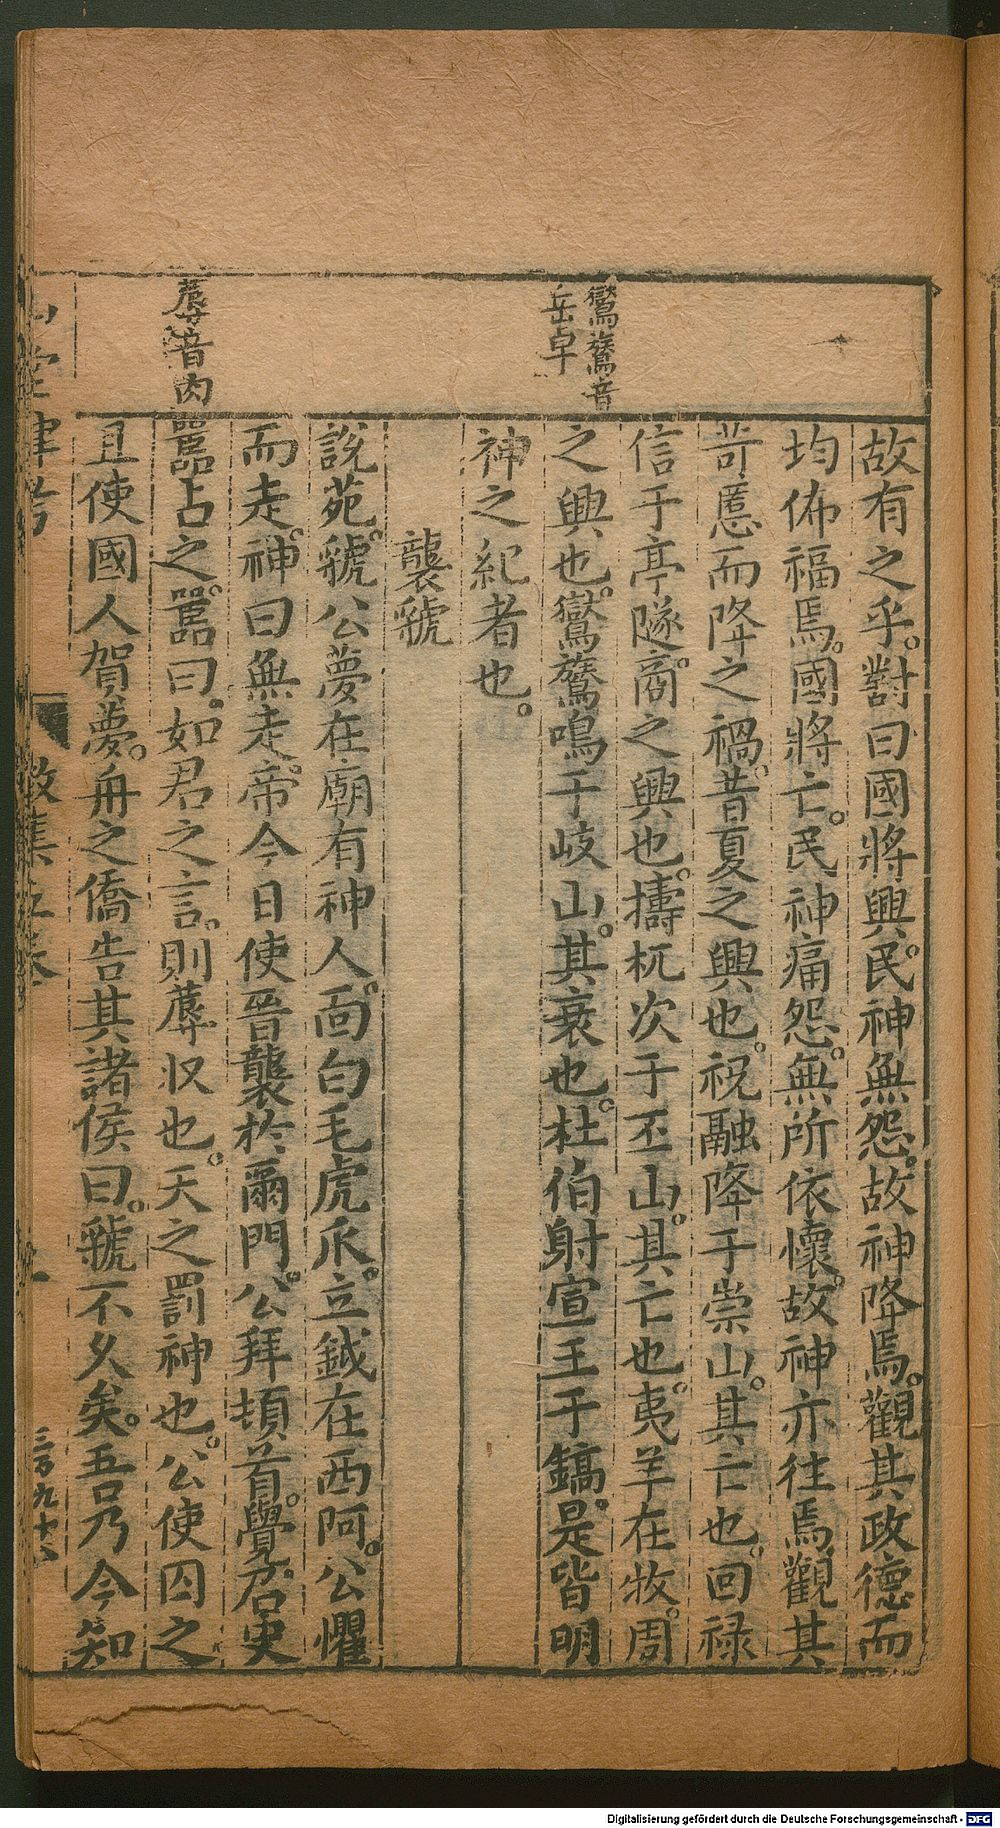 鸑鷟音
岳卓
蓐音肉
故有之乎對曰國將興民神無怨故神降焉觀其政德而
均佈福焉國將亡民神痛怨無所依懷故神亦往焉觀其
苛慝而降之禍昔夏之興也祝融降于崇山其亡也回祿
信于亭隧商之興也檮杌次于丕山其亡也夷羊在牧周
之興也鸑鷟鳴于岐山其衰也杜伯射宣王于鎬是皆明
神之紀者也
襲虢
說苑虢公夢在廟有神人面白毛虎爪立鉞在西阿公懼
而走神曰無走帝今日使晉襲於爾門公拜頓首覺召史
嚚占之嚚曰如君之言則蓐收也天之罰神也公使囚之
且使國人賀夢舟之僑告其諸侯曰虢不久矣吾乃今知
山堂肆考
徵集
Digitalisierung gefördert durch die Deutsche Forschungsgemeinschaft - DFG